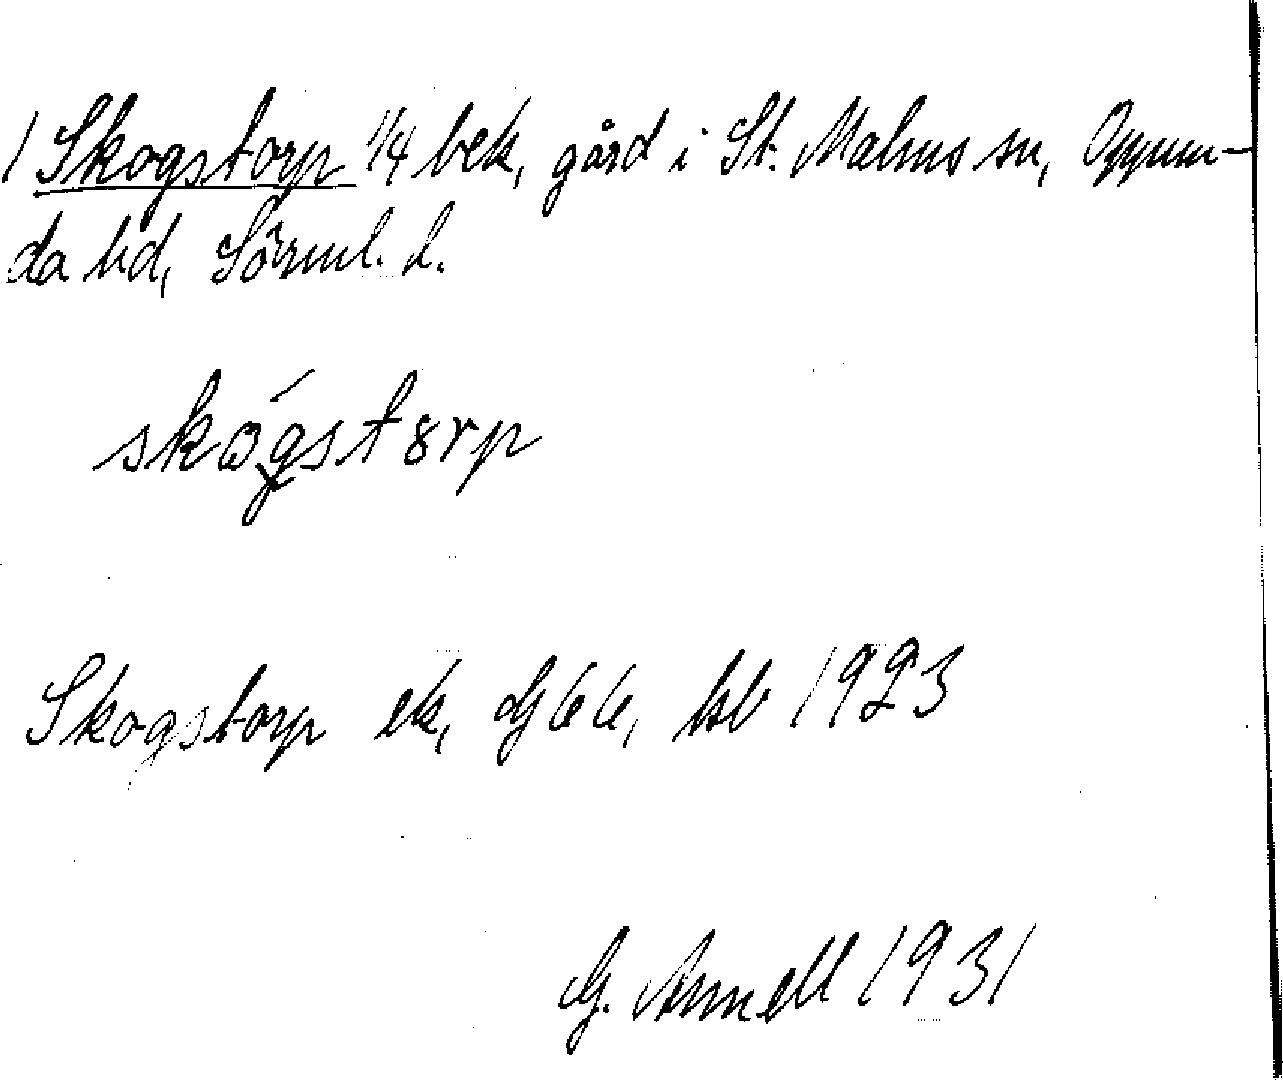 1 Skogstorp 1/4 bek, gård i St. Malms sn, Oppun-
da hd, Sörml. l.
skógstorp
Skogstorp ek, G66, hsb 1923
G. Annell 1931